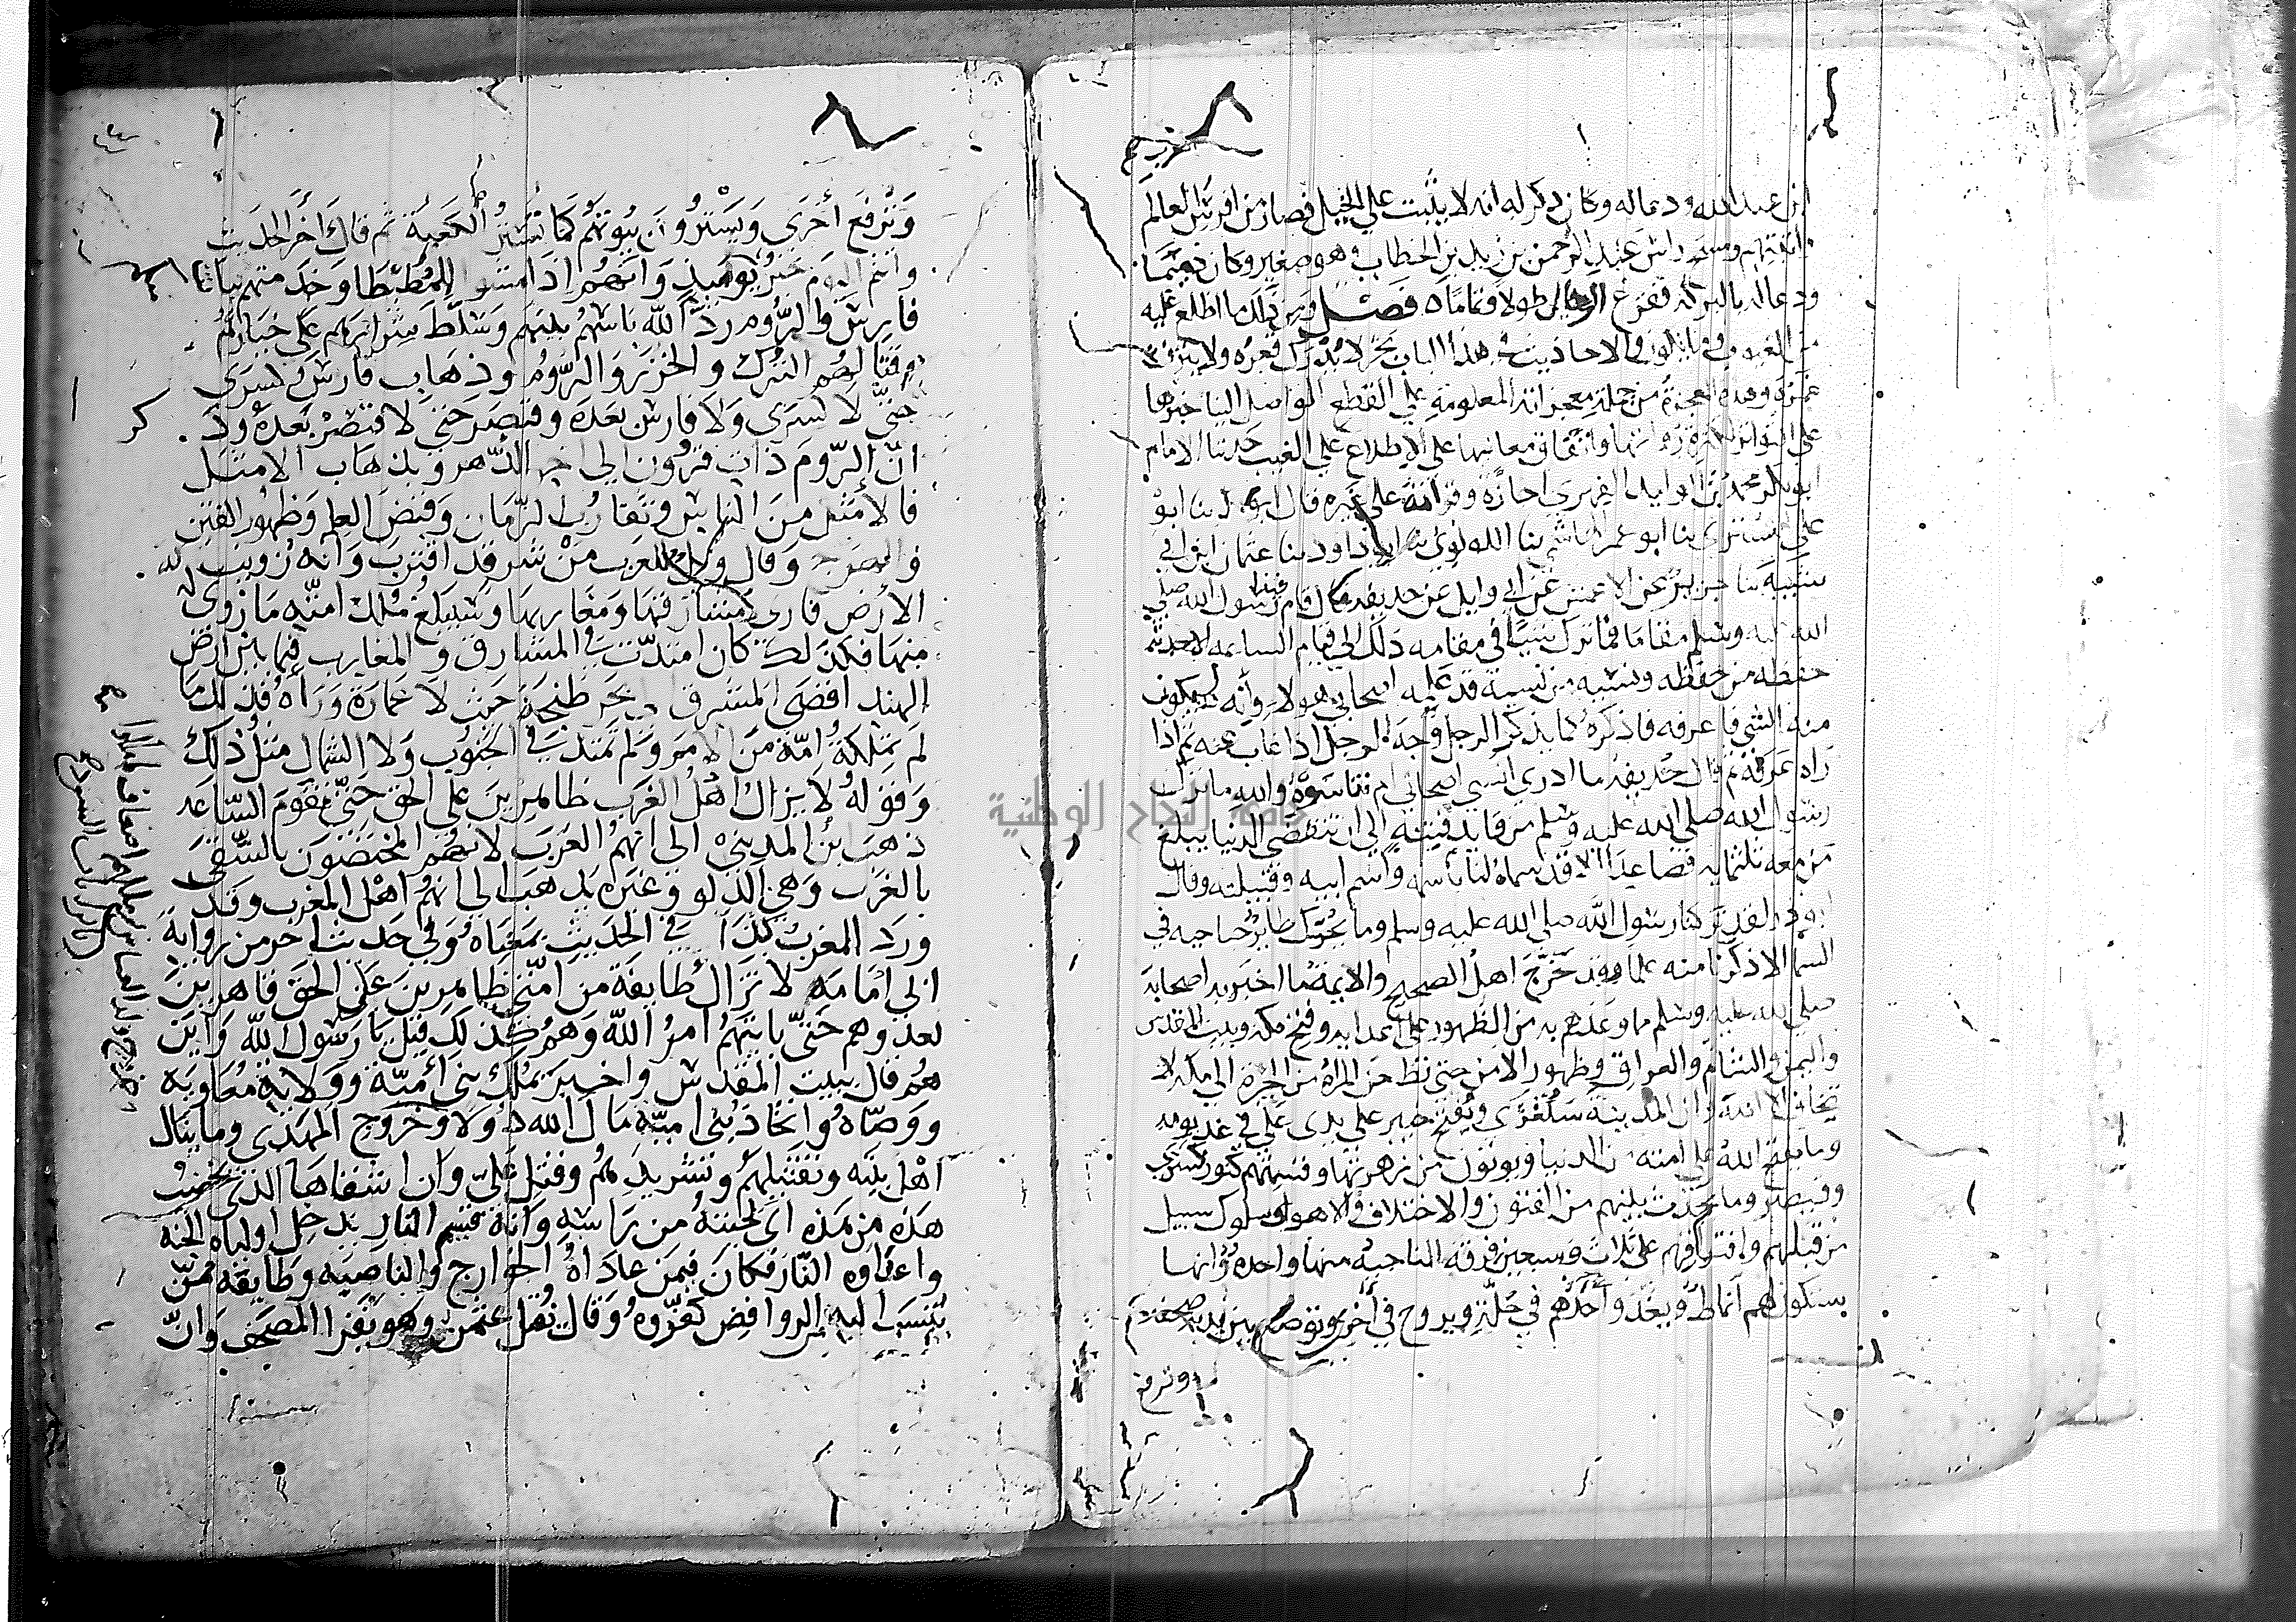 ابن عبد الله ودعا له وكان ذكر له انه لا يثبت على الخيل فصار من افرس العرب
واثبتهم ومسح راس عبد الرحمن بن زيد بن الخطاب وهو صغير وكان دميما
ودعا له بالبركة ففرع الرجال طولا وتماما فصل ومن ذلك ما اطلع عليه
من الغيوب وما يكون والاحاديث في هذا الباب بحر لا يدرك قعره ولا ينزف
غمره وهذه المعجزة من جملة معجزاته المعلومة على القطع الواصل الينا خبرها
على التواتر لكثرة رواتها واتفاق معانيها على الاطلاع على الغيب حدثنا الامام
ابو بكر محمد بن الوليد الفهري اجازة وقراته على غيره قال ابو بكر بنا ابو
على التستري بنا ابو عمر الهاشمي بنا اللولوي بنا ابو داود بنا عثمان ابن ابي
شيبة بنا جرير عن الاعمش عن ابي وايل عن حذيفة قال قام فينا رسول الله صلى
الله عليه وسلم مقاما فما ترك شيا في مقامه ذلك الى قيام الساعة الا حدثه
حفظه من حفظه ونسيه من نسيه قد علمه اصحابي هولاء وانه ليكون
منه الشي فاعرفه فاذكره كما يذكر الرجل وجه الرجل اذا غاب عنه ثم اذا
راه عرفه ثم قال حذيفة ما ادري انسي اصحابي ام تناسوه والله ما ترك
رسول الله صلى الله عليه وسلم من قايد فتنة الى ان تنقضي الدنيا يبلغ
من معه ثلثماية فصاعدا الا قد سماه لنا باسمه واسم ابيه وقبيلته وقال
ابو ذر لقد تركنا رسول الله صلى الله عليه وسلم وما يحرك طاير جناحيه في
السما الا ذكرنا منه علما وقد خرج اهل الصحيح والايمة ما اخبر به اصحابه
صلى الله عليه وسلم مما وعدهم به من الظهور على اعدايه وفتح مكة وبيت المقدس
واليمن والشام والعراق وظهور الامن حتى تظعن المراة من الحيرة الى مكة لا
تخاف الا الله وان المدينة ستغزى وتفتح خيبر على يدي علي في غد يومه
وما يفتح الله على امته من الدنيا ويوتون من زهرتها وقسمتهم كنوز كسرى
وقيصر وما يحدث بينهم من الفتون والاختلاف والاهوا وسلوك سبيل
من قبلهم وافتراقهم على ثلاث وسبعين فرقة الناجية منها واحدة وانها
ستكون لهم انماط ويغدو احدهم في حلة ويروح في اخرى وتوضع بين يديه صحفة
وترفع
وترفع أخرى ويسترون بيوتهم كما تستر الكعبة ثم قال اخر الحديث
وانتم اليوم خير يوميذ وانهم اذا مشوا المطيطا وخدمتهم بنات
فارس والروم رد الله باسهم بينهم وسلط شرارهم على خيارهم
وقتالهم الترك والخزر والروم وذهاب فارس وكسرى
حتى لا كسرى ولا فارس بعده وقيصر حتى لا قيصر بعده وذكر
ان الروم ذات قرون الى اخر الدهر وبذهاب الامثل
فالامثل من الناس وتقارب الزمان وقبض العلم وظهور الفتن
والهرج وقال ويل للعرب من شر قد اقترب وانه زويت له
الأرض فاري مشارقها ومغاربها وسيبلغ ملك امته ما زوى له
منها فكذلك كان امتدت في المشارق والمغارب فيما بين ارض
الهند اقصى المشرق الى بحر طنجة حيث لا عمارة وراه فذلك ما
لم تملكه امة من الامم ولم تمتد في الجنوب ولا الشمال مثل ذلك
وقوله لا يزال اهل الغرب ظاهرين على الحق حتى تقوم الساعة
ذهب بن المديني الى انهم العرب لانهم المختصون بالسقي
بالغرب وهي الدلو وغيره يذهب الى انهم اهل المغرب وقد
ورد المغرب كذا في الحديث بمعناه وفي حديث اخر من رواية
ابي امامة لا تزال طايفة من امتي ظاهرين على الحق قاهرين
لعدوهم حتى ياتيهم امر الله وهم كذلك قيل يا رسول الله واين
هم قال ببيت المقدس واخبر بملك بني أمية وولاية معاوية
ووصاه واتخاذ بني امية مال الله دولا وخروج المهدي وما ينال
اهل بيته وتقتيلهم وتشريدهم وقتل علي وان اشقاها الذي يخضب
هذه من هذه اي لحيته من راسه وانه قسيم النار يدخل اولياه الجنة
واعداوه النار فكان فيمن عاداه الخوارج والناصبة وطايفة ممن
ينتسب اليه من الروافض كفروه وقال يقتل عثمن وهو يقرا المصحف وان
جامعة النجاح الوطنية